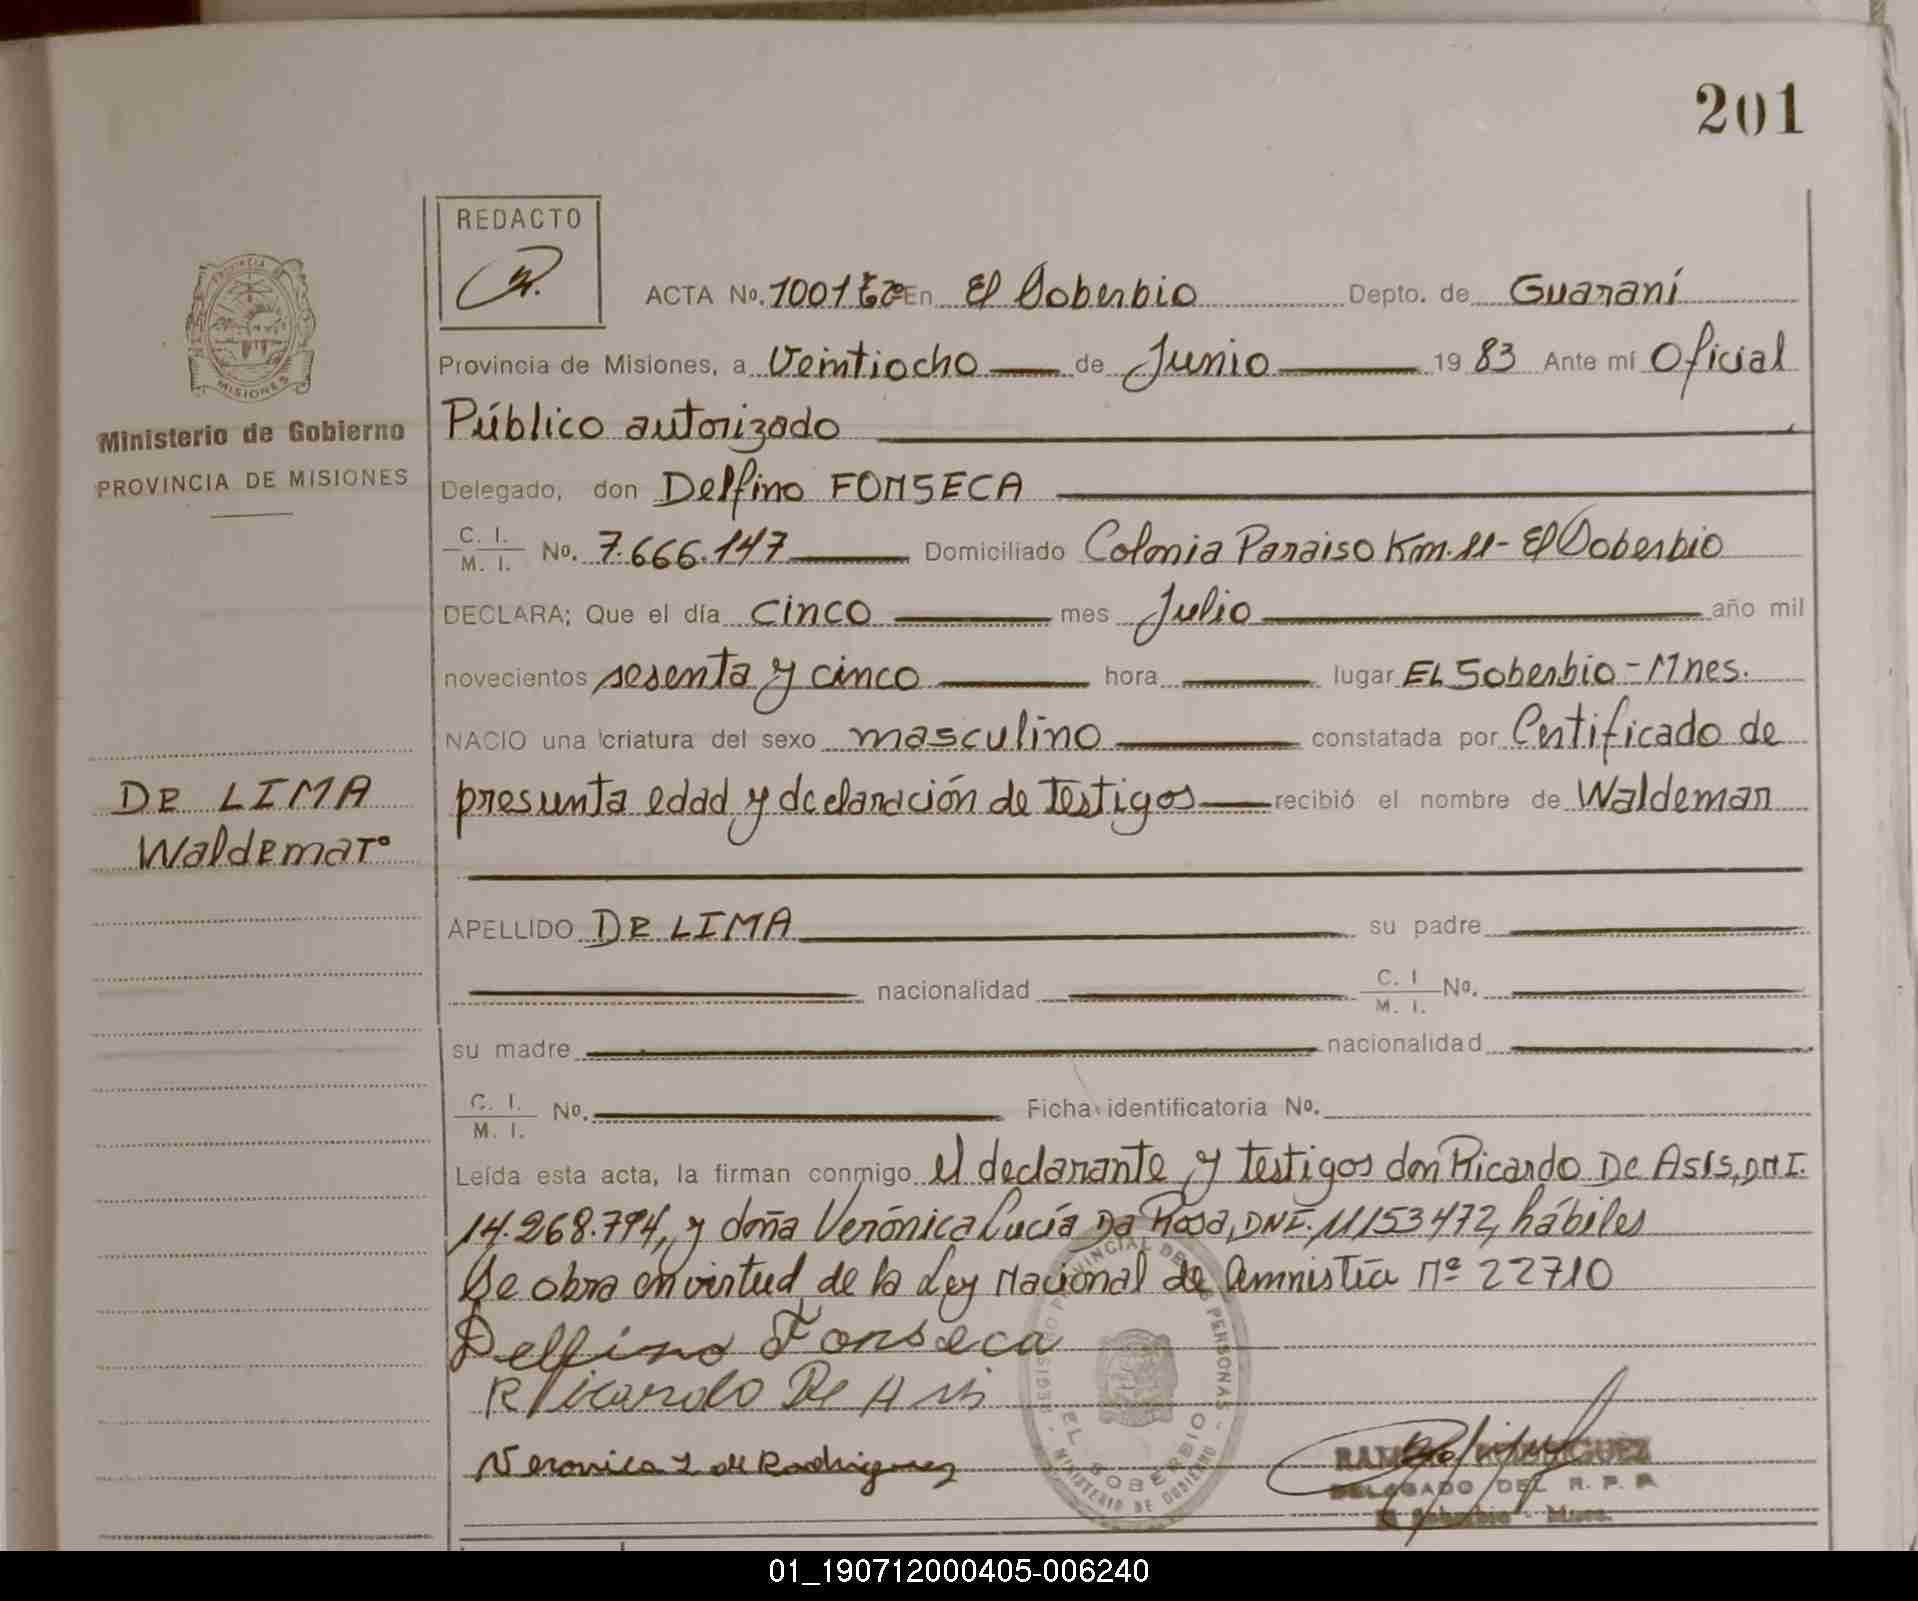 201
REDACTO
ACTA No. 1001 En El Soberbio Depto. de Guaraní
Provincia de Misiones, a Veintiocho de Junio 19 83 Ante mí Oficial
Público autorizado
Delegado, don Delfino FONSECA
C. I. M. I. No. 7.666.147 Domiciliado Colonia Paraiso Km. 11 - El Soberbio
DECLARA; Que el día cinco mes Julio año mil
novecientos sesenta y cinco hora lugar EL Soberbio - Mnes.
NACIO una criatura del sexo masculino constatada por Certificado de
presunta edad y declaración de testigos recibió el nombre de Waldemar
APELLIDO DE LIMA su padre
nacionalidad C. I M. I. No.
su madre nacionalidad
C. I. M. I. No. Ficha identificatoria No.
Leída esta acta, la firman conmigo el declarante y testigos don Ricardo De Asís, DNI.
14.268.794, y doña Verónica Lucía Da Rosa, DNI. 11153472, hábiles
Se obra en virtud de la Ley Nacional de Amnistía Nº 22710
Delfino Fonseca
Ricardo De Asis
Veronica L de Rodriguez
PROVINCIA
MISIONES
Ministerio de Gobierno
PROVINCIA DE MISIONES
DE LIMA
Waldemar
REGISTRO PROVINCIAL DE LAS PERSONAS
EL SOBERBIO
MINISTERIO DE GOBIERNO
RODRIGUEZ
DELEGADO DEL R. P. P.
El Soberbio - Mnes.
01_190712000405-006240